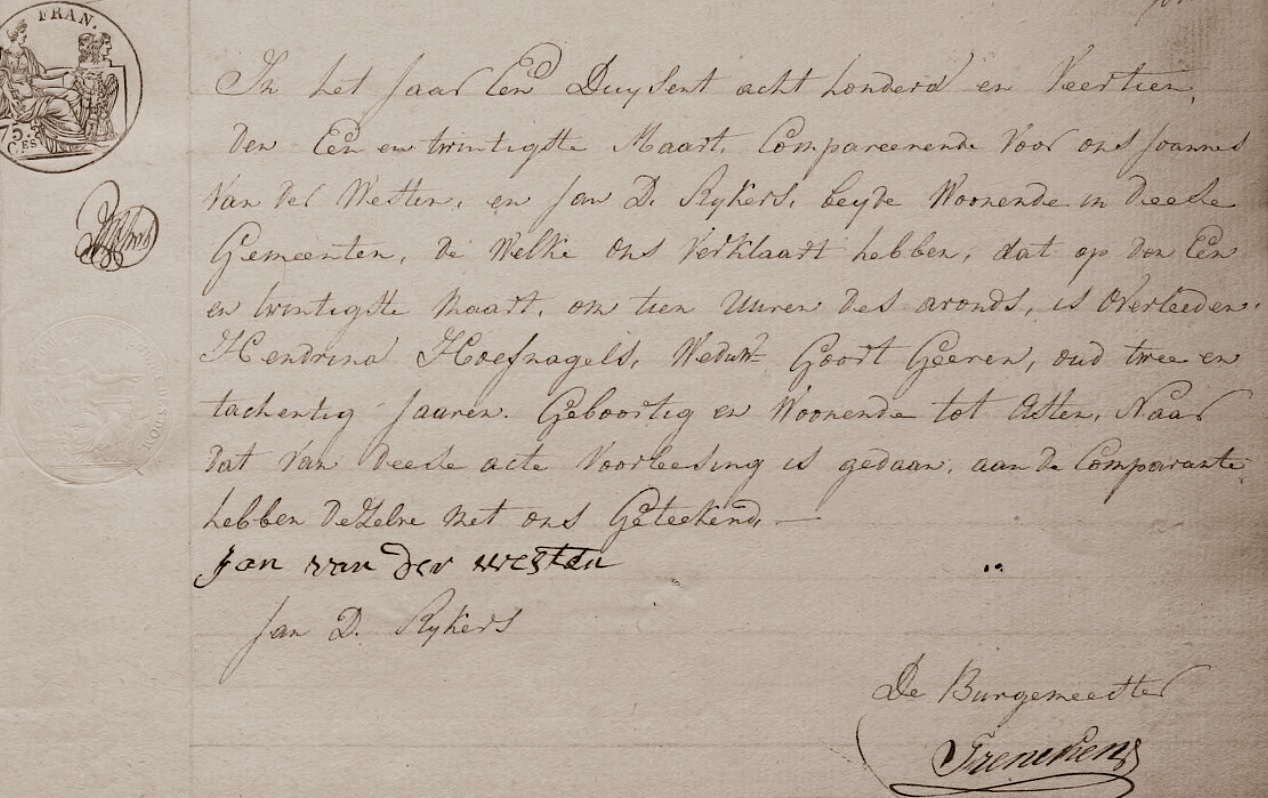 FRAN.
75.
CES
In het Jaar Een Duysent acht honderd en Veertien,
den Een en twintigste Maart, Compareerende Voor ons Joannes
Van der Westen, en Jan D. Rykers, beyde Woonende in deese
Gemeenten, de Welke ons Verklaart hebben, dat op den Een
en twintigste Maart, om tien Uuren des avonds, is Overleeden,
Hendrina Hoefnagels, Weduwe Goort Geeren, oud twee en
tachentig Jaaren. Geboortig en Woonende tot Asten, Naar
dat Van deese acte Voorleesing is gedaan, aan de Comparante,
hebben deZelve Met ons Geteekend,
Jan van der westen
Jan D. Rykers
De Burgemeester
Frencken